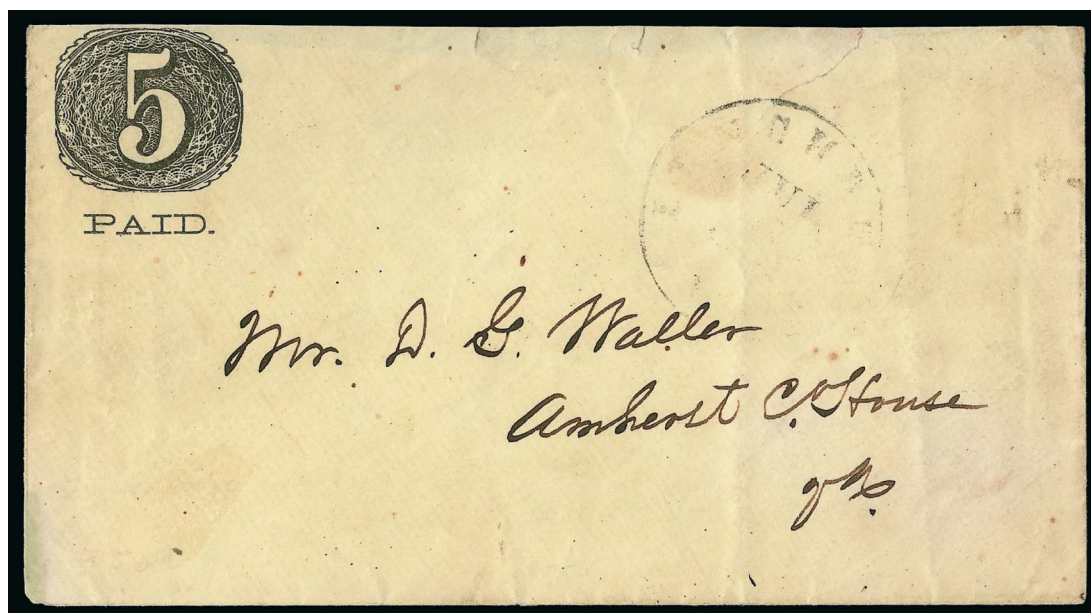 5
PAID.
Mr. D. G. Waller
Amherst C. House
Va.